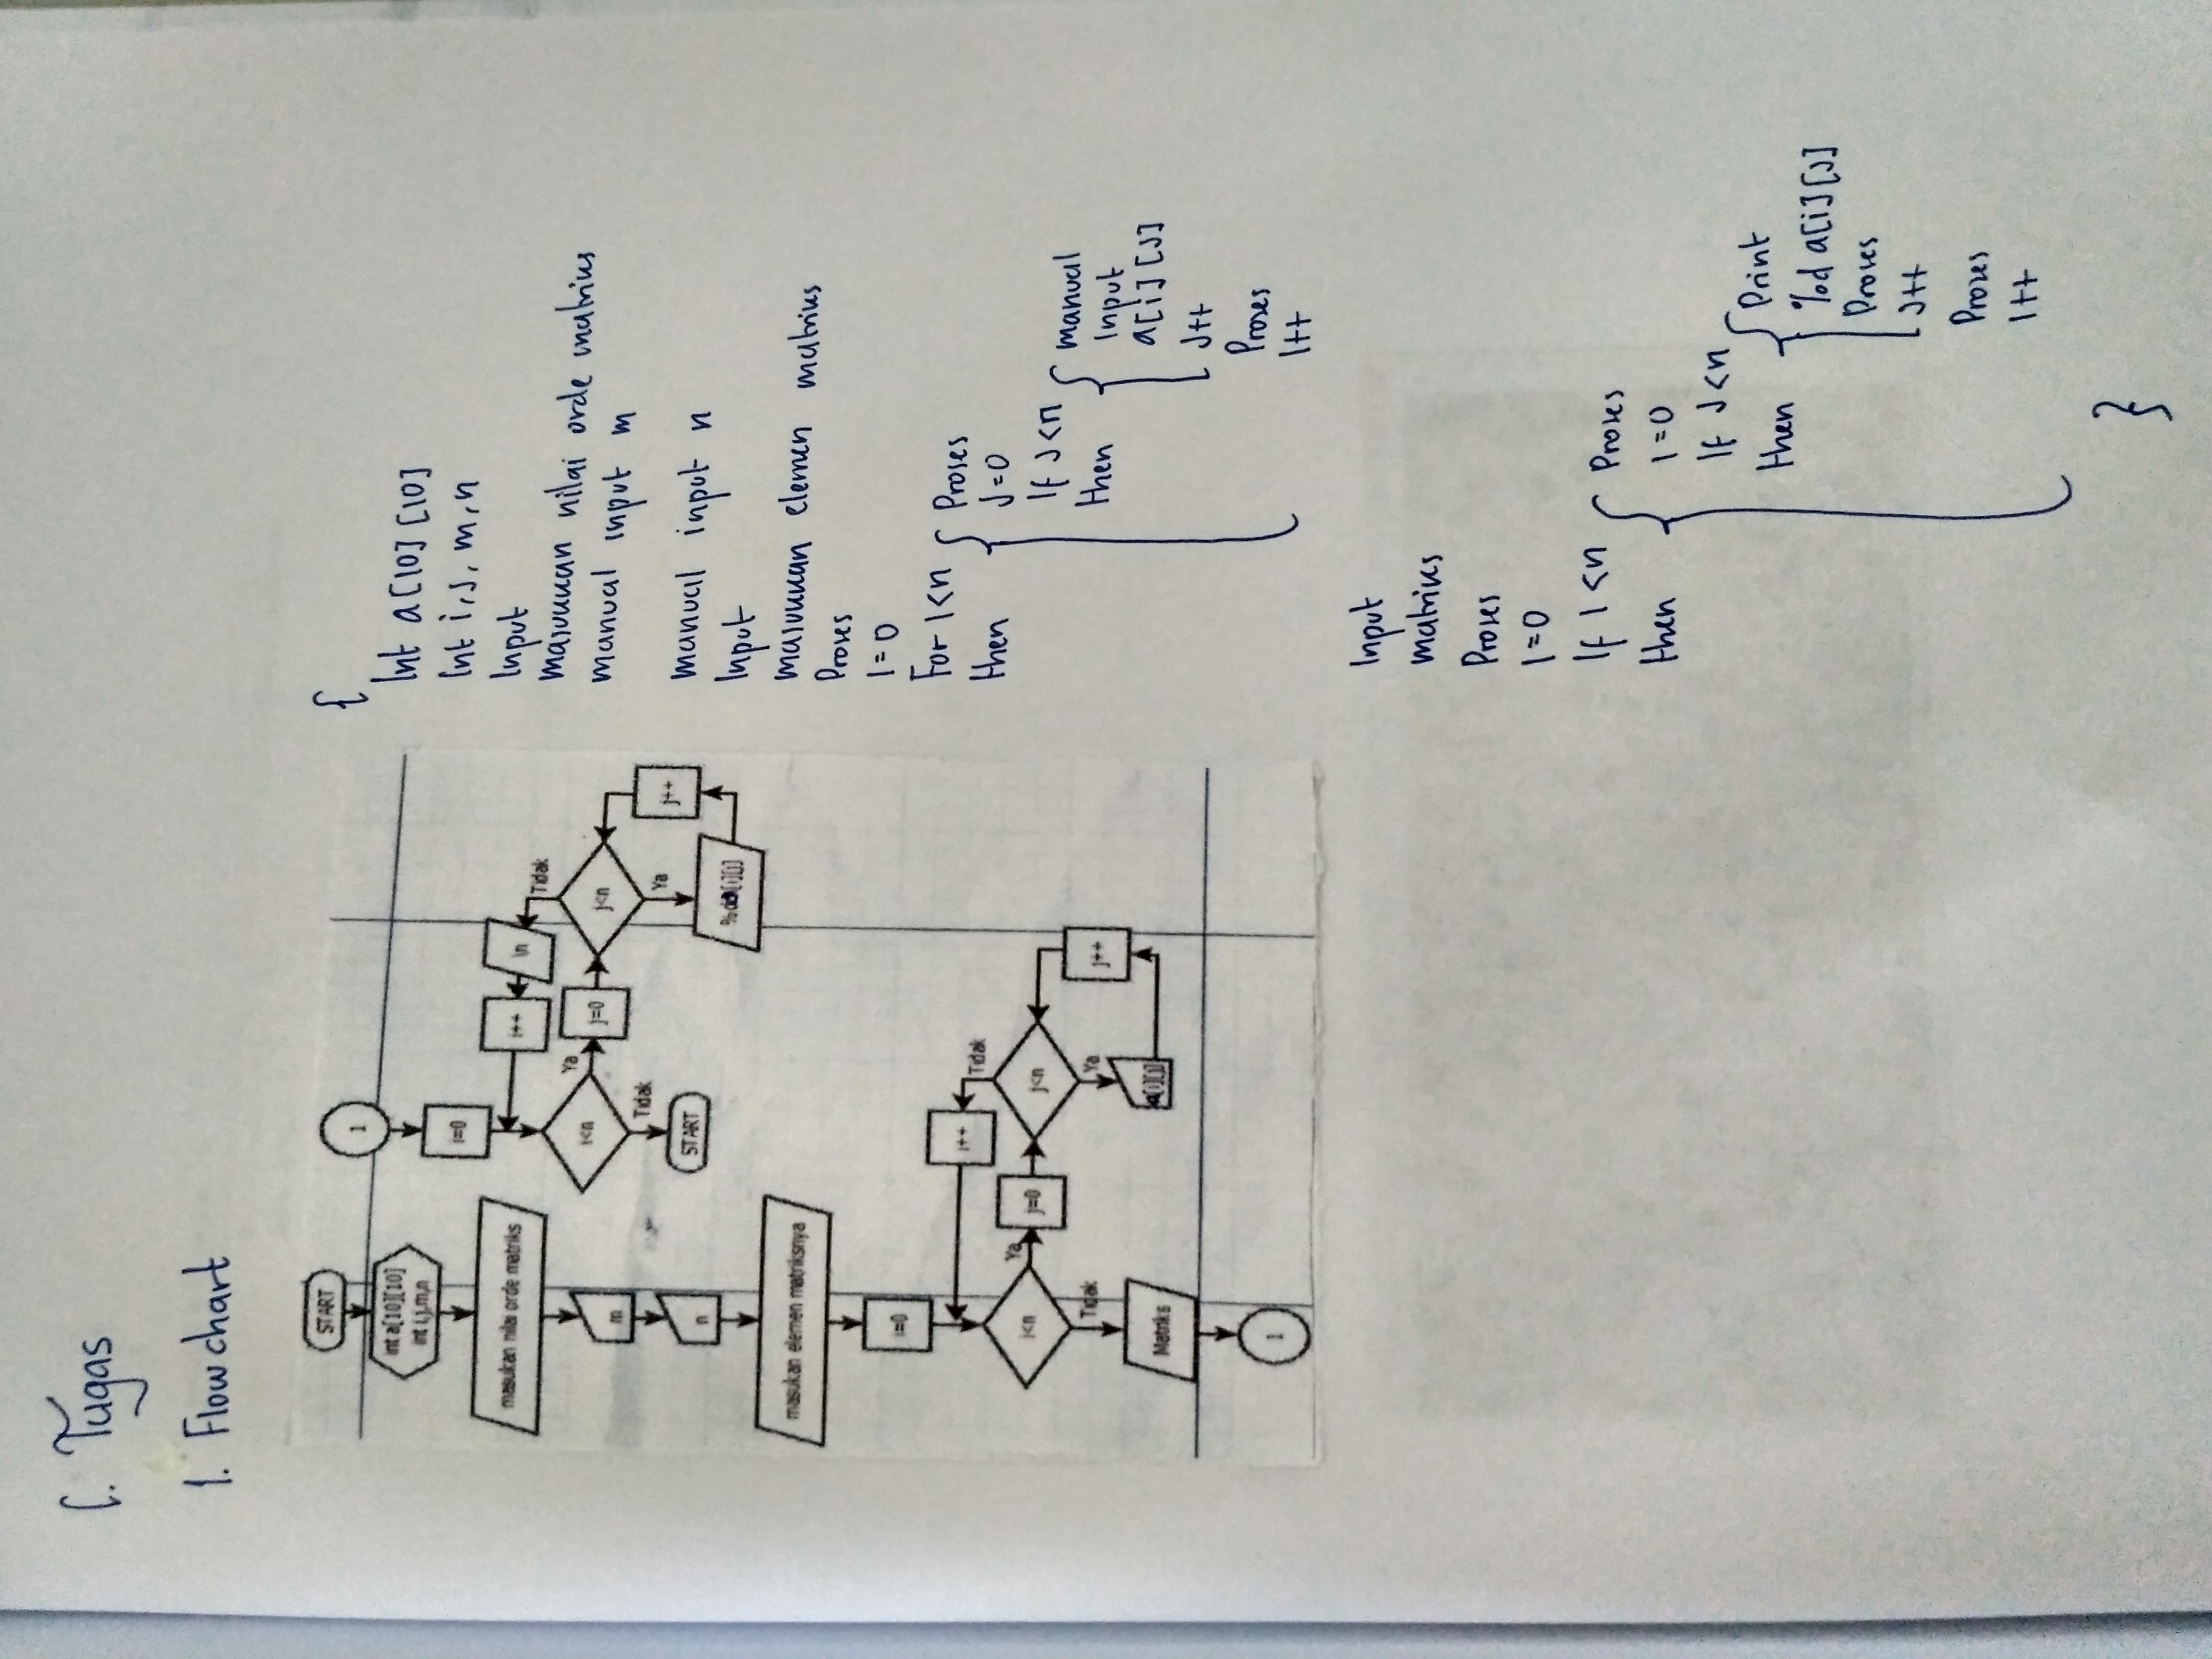 C. Tugas
1. Flowchart
START
int a[10][10]
int i,j,m,n
masukan nilai orde matriks
m
n
masukan elemen matriksnya
i=0
i<n
Ya
Tidak
j=0
j<n
Tidak
Ya
i++
a[i][j]
j++
Matriks
1
1
i=0
i<n
Ya
Tidak
START
j=0
j<n
Tidak
Ya
\n
i++
j++
{
Int a[10][10]
Int i,J,m,n
Input
masukkan nilai orde matriks
manual input m
manual input n
Input
masukkan elemen matriks
Proses
I=0
For I<n
then
{ Proses
J=0
If J<n
then
{ manual
Input
a[i][J]
J++
Proses
I++
Input
matriks
Proses
I=0
If I<n
then
{ Proses
I=0
If J<n
then
{ Print
%d a[i][J]
Proses
J++
Proses
I++
}